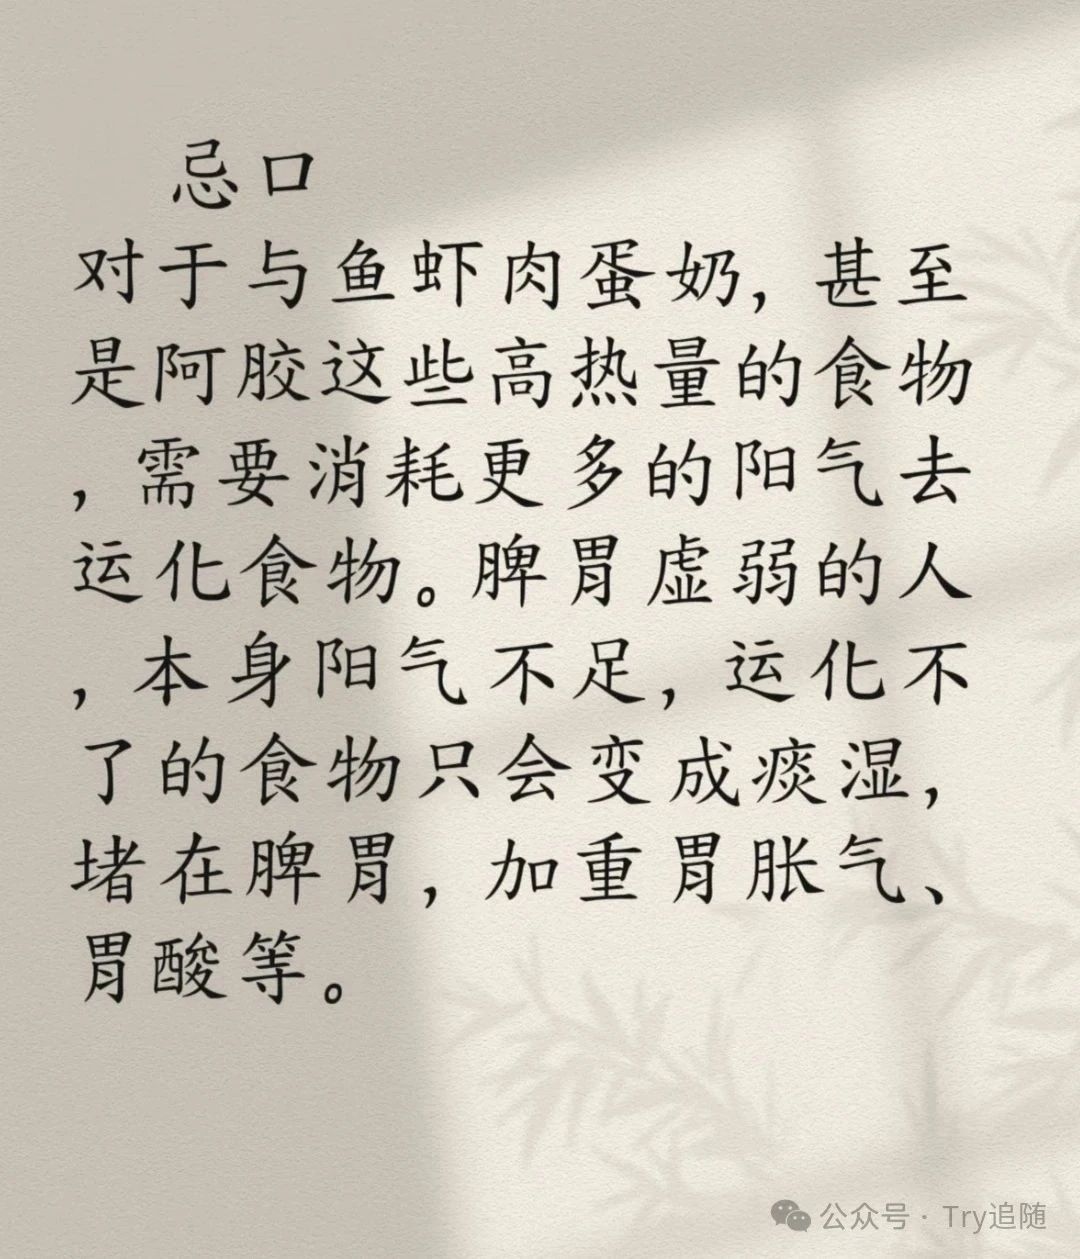 忌口
对于与鱼虾肉蛋奶，甚至
是阿胶这些高热量的食物
，需要消耗更多的阳气去
运化食物。脾胃虚弱的人
，本身阳气不足，运化不
了的食物只会变成痰湿，
堵在脾胃，加重胃胀气、
胃酸等。
公众号 · Try追随